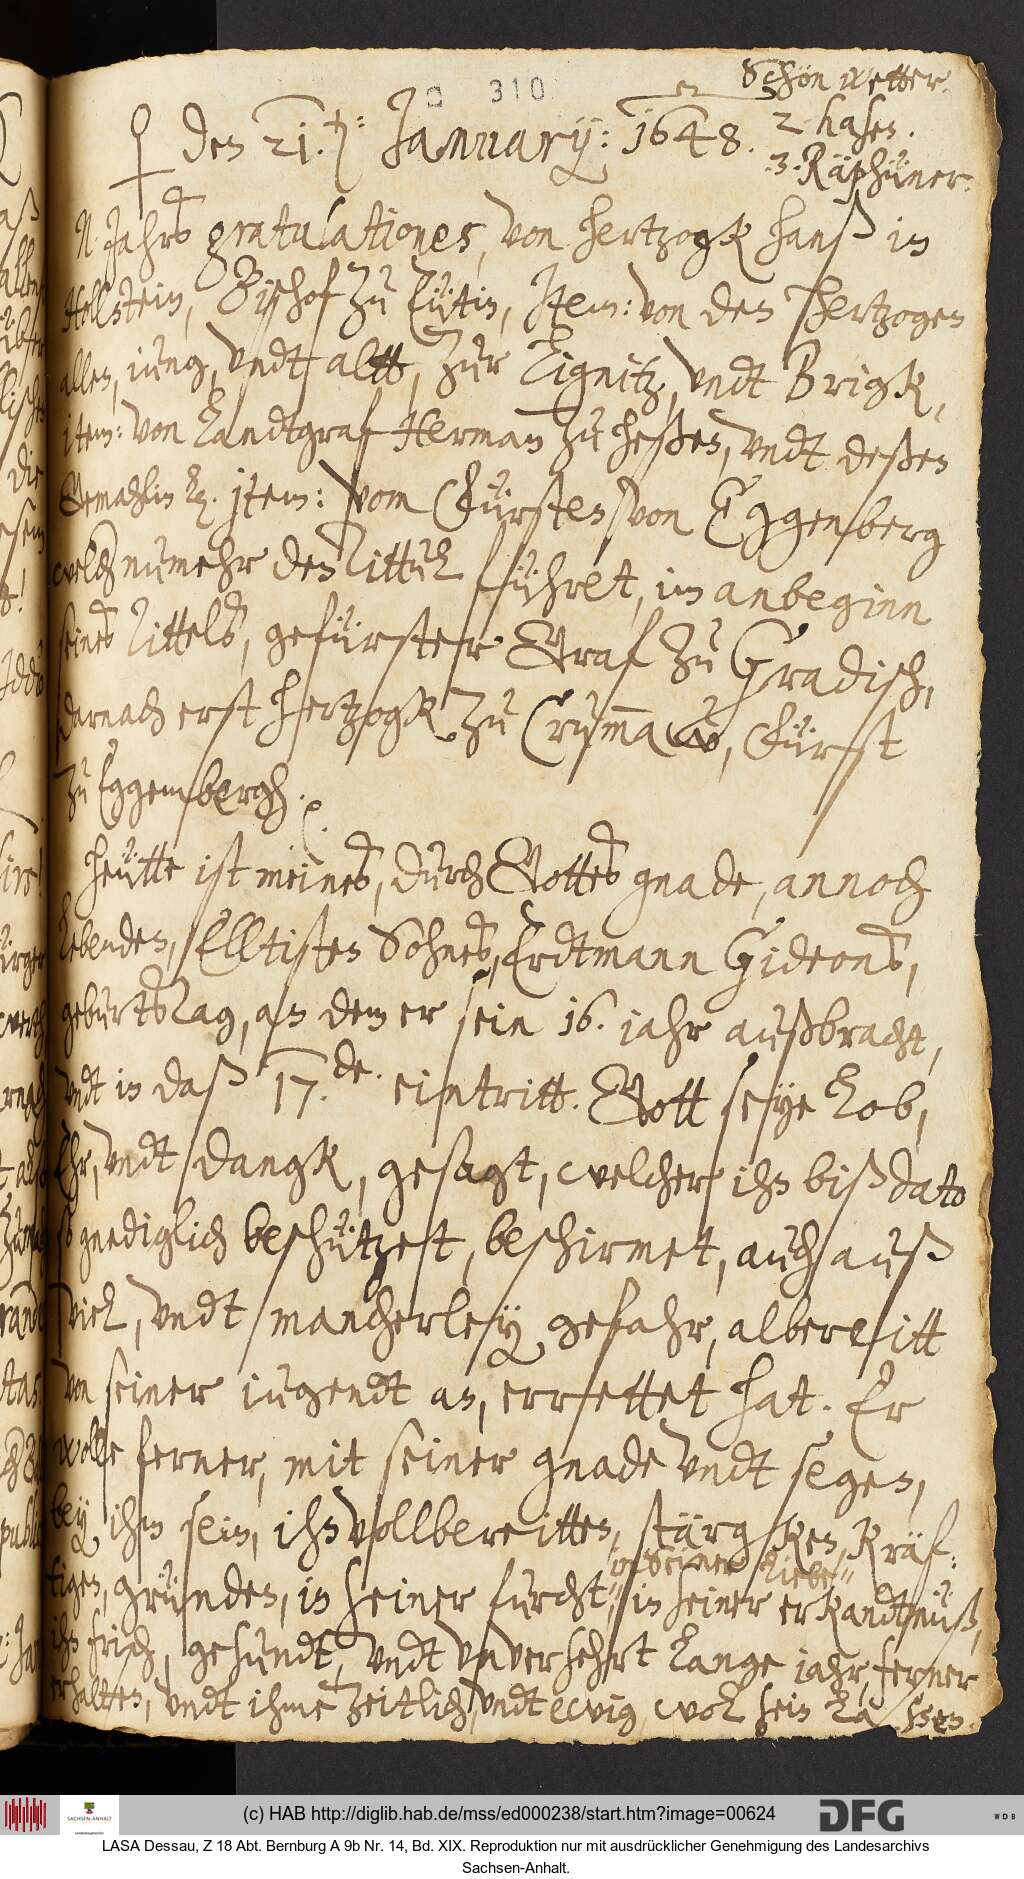 310.
Schön wetter.
2 hasen.
3 Räphüner.
♀ den 21.ten: January: 1648.
N. Jahrs gratulationes, von Hertzogk Hanß in
Hollstein, Bischof zu Eütin, Item: von den Hertzogen
allen, iung, undt altt, zur Lignitz, undt Brigk,
item: von Landtgraf Herman zu Heßen, undt deßen
Gemahlin etc. item: vom Fürsten von Eggenberg
welch numehr den Tittul führet, im anbeginn
seines Tittels, gefürster Graf zu Gradisch,
darnach erst Hertzogk zu Crummaw, Fürst
zu Eggembergh.
Heütte ist meines, durch Gottes gnade, annoch
lebenden, Elltisten Sohns, Erdtmann Gideons,
geburtstag, an dem er sein 16. iahr außbracht,
undt in daß 17.de. eintritt. Gott seye Lob,
Ehr, undt dangk, gesagt, welcher ihn biß dato
so gnediglich beschützet, beschirmet, auch auß
viel, undt mancherley gefahr, albereitt
von seiner iugendt an, errettet hat. Er
wolle ferner, mit seiner gnade undt segen,
bey ihm sein, ihn vollbereitten, stärgken, kräf-
tigen, gründen, in seiner furcht, in seiner liebe, in seiner erkandtnüß,
ihn frisch, gesundt, undt unversehrt lange iahr, ferner
erhalten, undt ihme zeitlich, undt ewig wol sein laßen.
(c) HAB http://diglib.hab.de/mss/ed000238/start.htm?image=00624
SACHSEN-ANHALT
DFG
WDB
LASA Dessau, Z 18 Abt. Bernburg A 9b Nr. 14, Bd. XIX. Reproduktion nur mit ausdrücklicher Genehmigung des Landesarchivs
Sachsen-Anhalt.